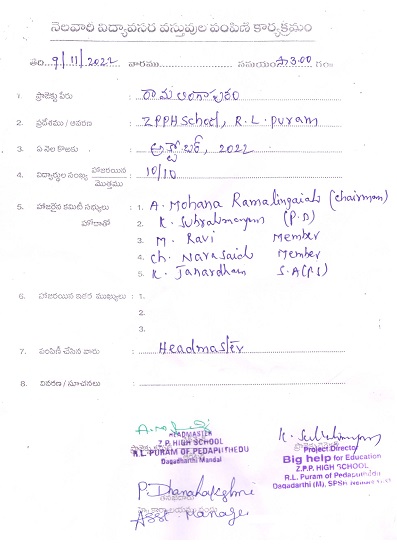 నెలవారీ విద్యావసర వస్తువుల పంపిణి కార్యక్రమం
తేది. 9/11/2022 వారము సమయం 3.00 గం.
1. ప్రాజెక్టు పేరు : రామలింగాపురం
2. ప్రదేశము / ఆవరణ : ZPPH School, R.L. puram
3. ఏ నెల కొఱకు : అక్టోబర్, 2022
4. విద్యార్థుల సంఖ్య హాజరయిన / మొత్తము : 10/10
5. హాజరైన కమిటీ సభ్యులు : 1. A. Mohana Ramalingaiah (Chairman)
హోదాతో 2. K. Subrahmanyam (P.D)
3. M. Ravi Member
4. Ch. Narasaiah Member
5. K. Janardhan S.A(P.S)
6. హాజరయిన ఇతర ముఖ్యులు : 1.
2.
3.
7. పంపిణీ చేసిన వారు : Headmaster
8. వివరణ / సూచనలు :
HEADMASTER
Z.P. HIGH SCHOOL
R.L. PURAM OF PEDAPUTHEDU
Dagadarthi Mandal
K. Subrahmanyam
Project Director
Big help for Education
Z.P.P. HIGH SCHOOL
R.L. Puram of Pedaputhedu
Dagadarthi (M), SPSR Nellore
P. Dhanalakshmi
Asst. Manager